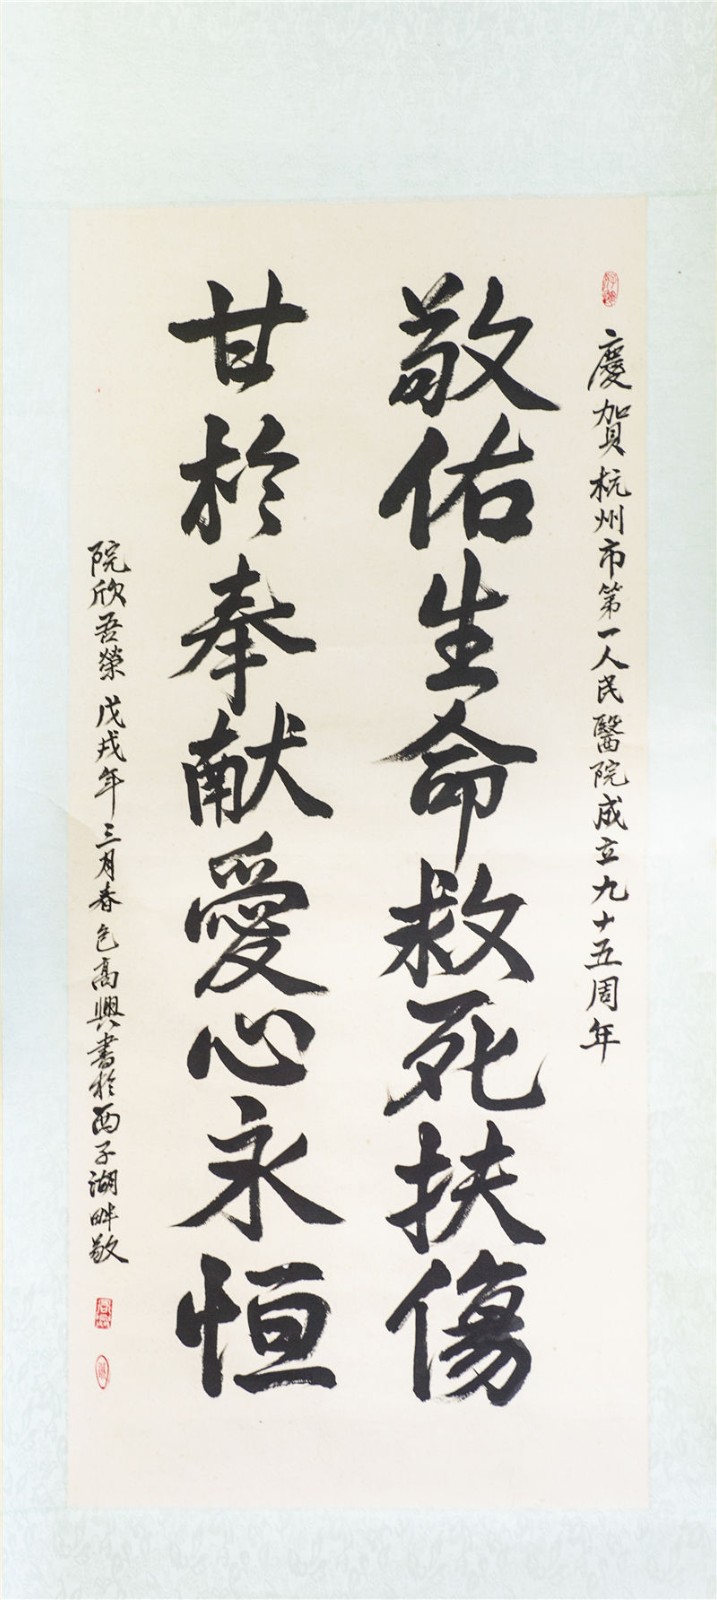 慶賀杭州市第一人民醫院成立九十五周年
敬佑生命救死扶傷
甘於奉献愛心永恒
院欣吾榮 戊戌年三月春色高興書於西子湖畔敬